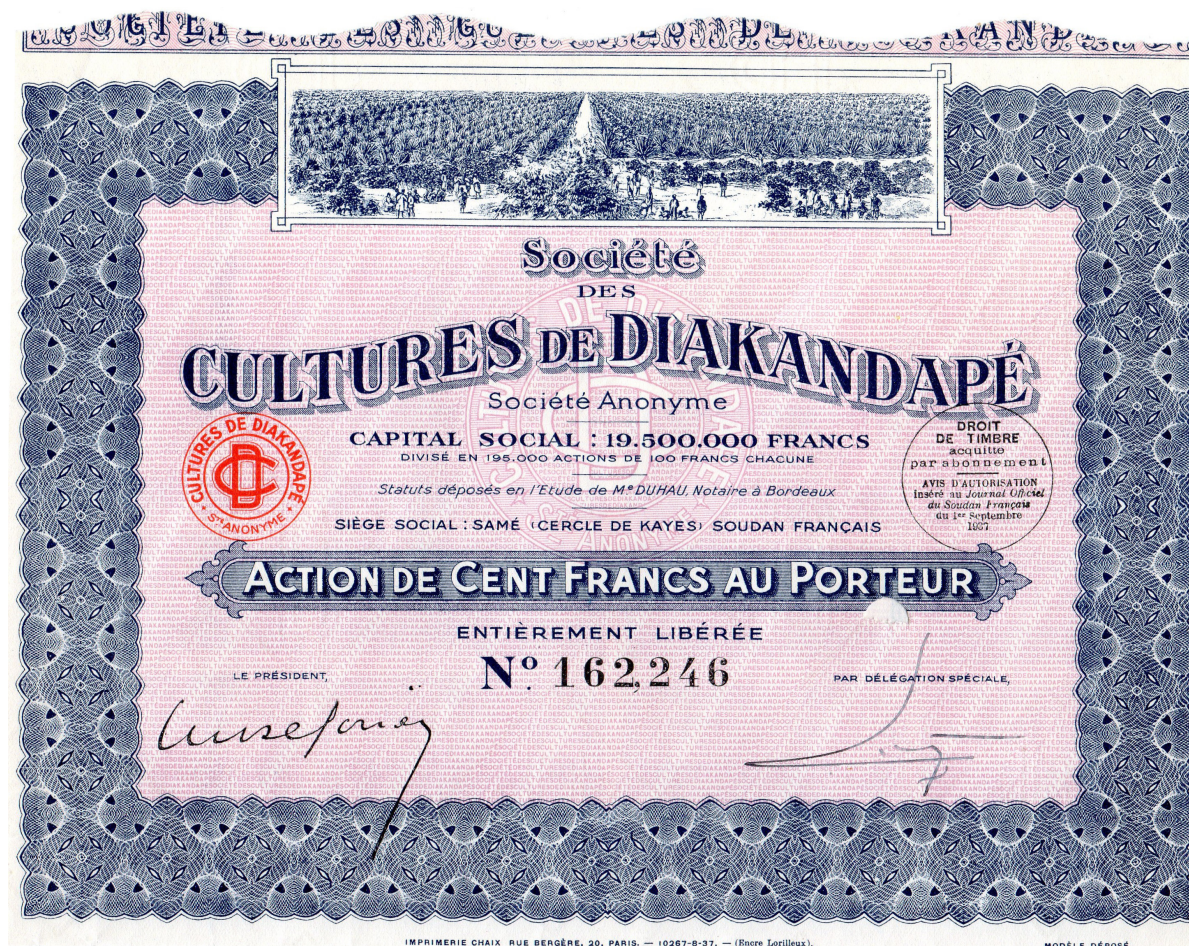 Société
DES
CULTURES DE DIAKANDAPÉ
Société Anonyme
CAPITAL SOCIAL : 19.500.000 FRANCS
DIVISÉ EN 195.000 ACTIONS DE 100 FRANCS CHACUNE
Statuts déposés en l'Etude de Me DUHAU, Notaire à Bordeaux
SIÈGE SOCIAL : SAMÉ (CERCLE DE KAYES) SOUDAN FRANÇAIS
CULTURES DE DIAKANDAPÉ
Sté ANONYME
DROIT
DE TIMBRE
acquitté
par abonnement
AVIS D'AUTORISATION
Inséré au Journal Officiel
du Soudan Français
du 1er Septembre
1937
ACTION DE CENT FRANCS AU PORTEUR
ENTIÈREMENT LIBÉRÉE
No. 162,246
LE PRÉSIDENT,
PAR DÉLÉGATION SPÉCIALE,
IMPRIMERIE CHAIX RUE BERGÈRE, 20, PARIS. — 10267-8-37. — (Encre Lorilleux).
MODÈLE DÉPOSÉ